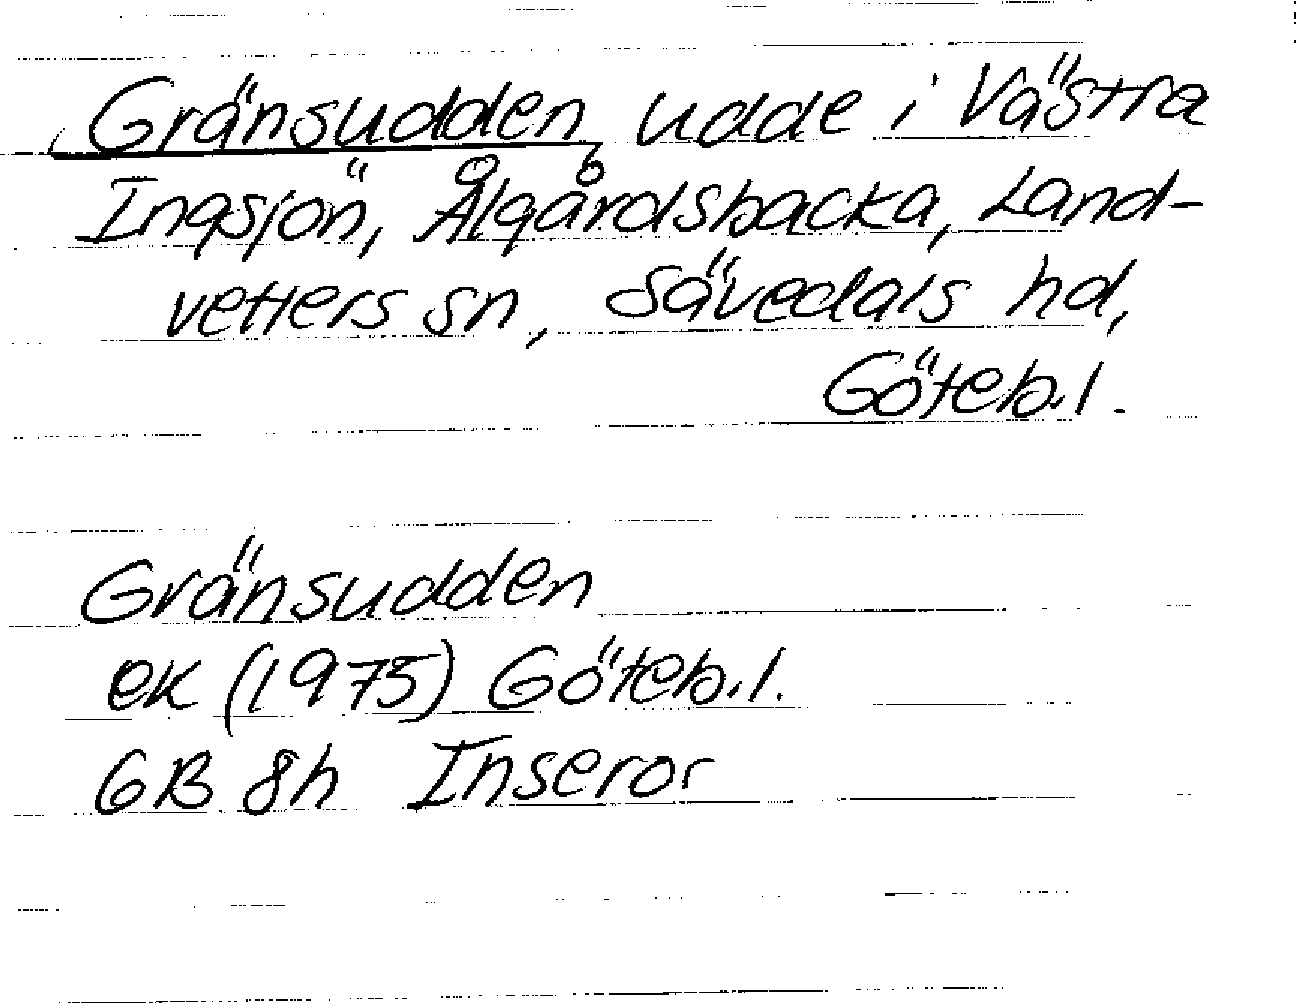 Gränsudden, udde i Västra
Ingsjön, Ålgårdsbacka, Land-
vetters sn, Sävedals hd,
Göteb.l.
Gränsudden
ek (1975) Göteb.l.
6B 8h Inseros